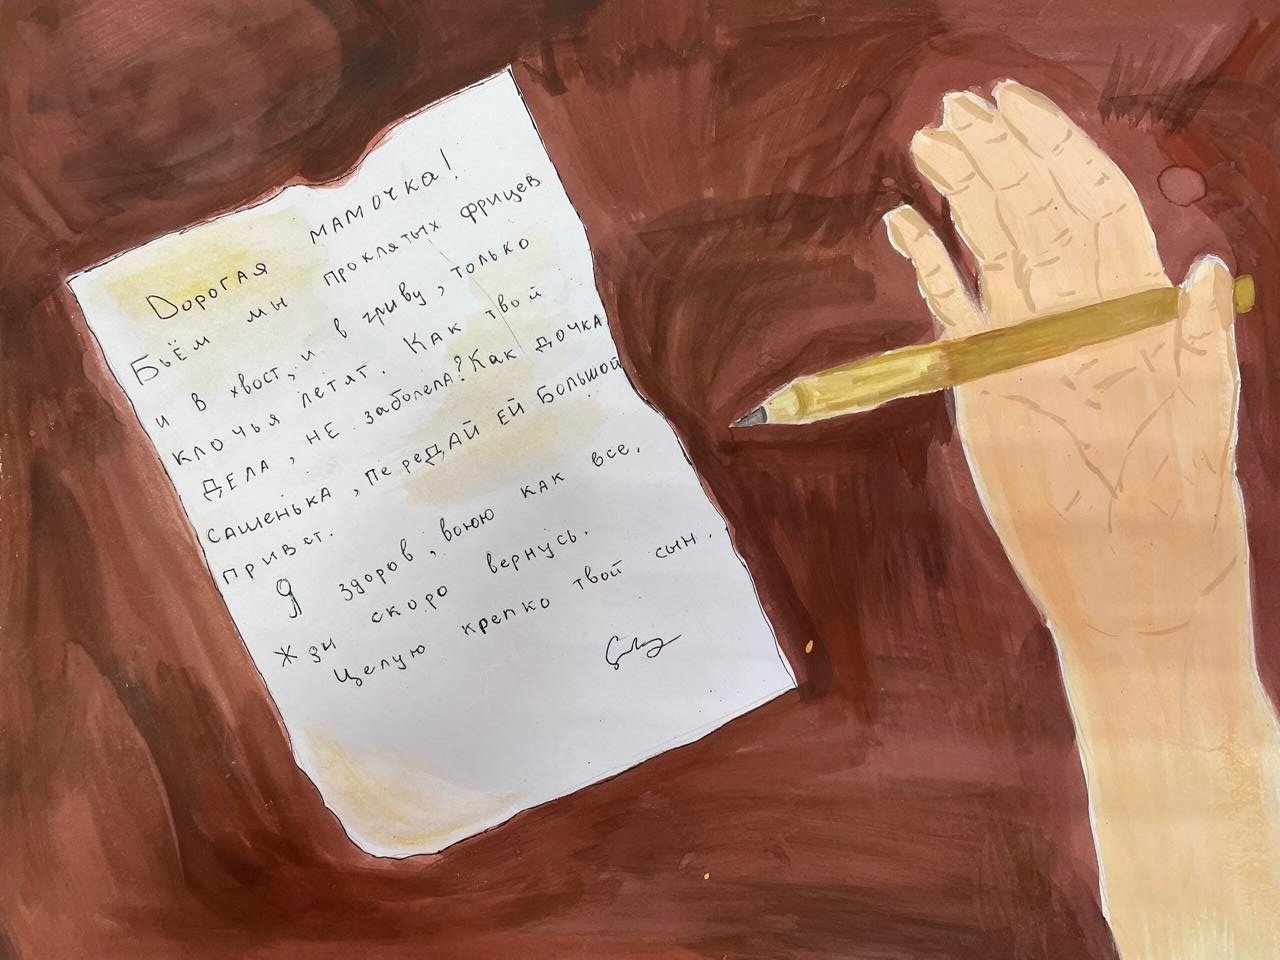 Дорогая мамочка!
Бьём мы проклятых фрицев
и в хвост, и в гриву, только
клочья летят. Как твои
дела, не заболела? Как дочка
сашенька, передай ей большой
привет.
Я здоров, воюю как все.
Жди скоро вернусь.
Целую крепко твой сын.